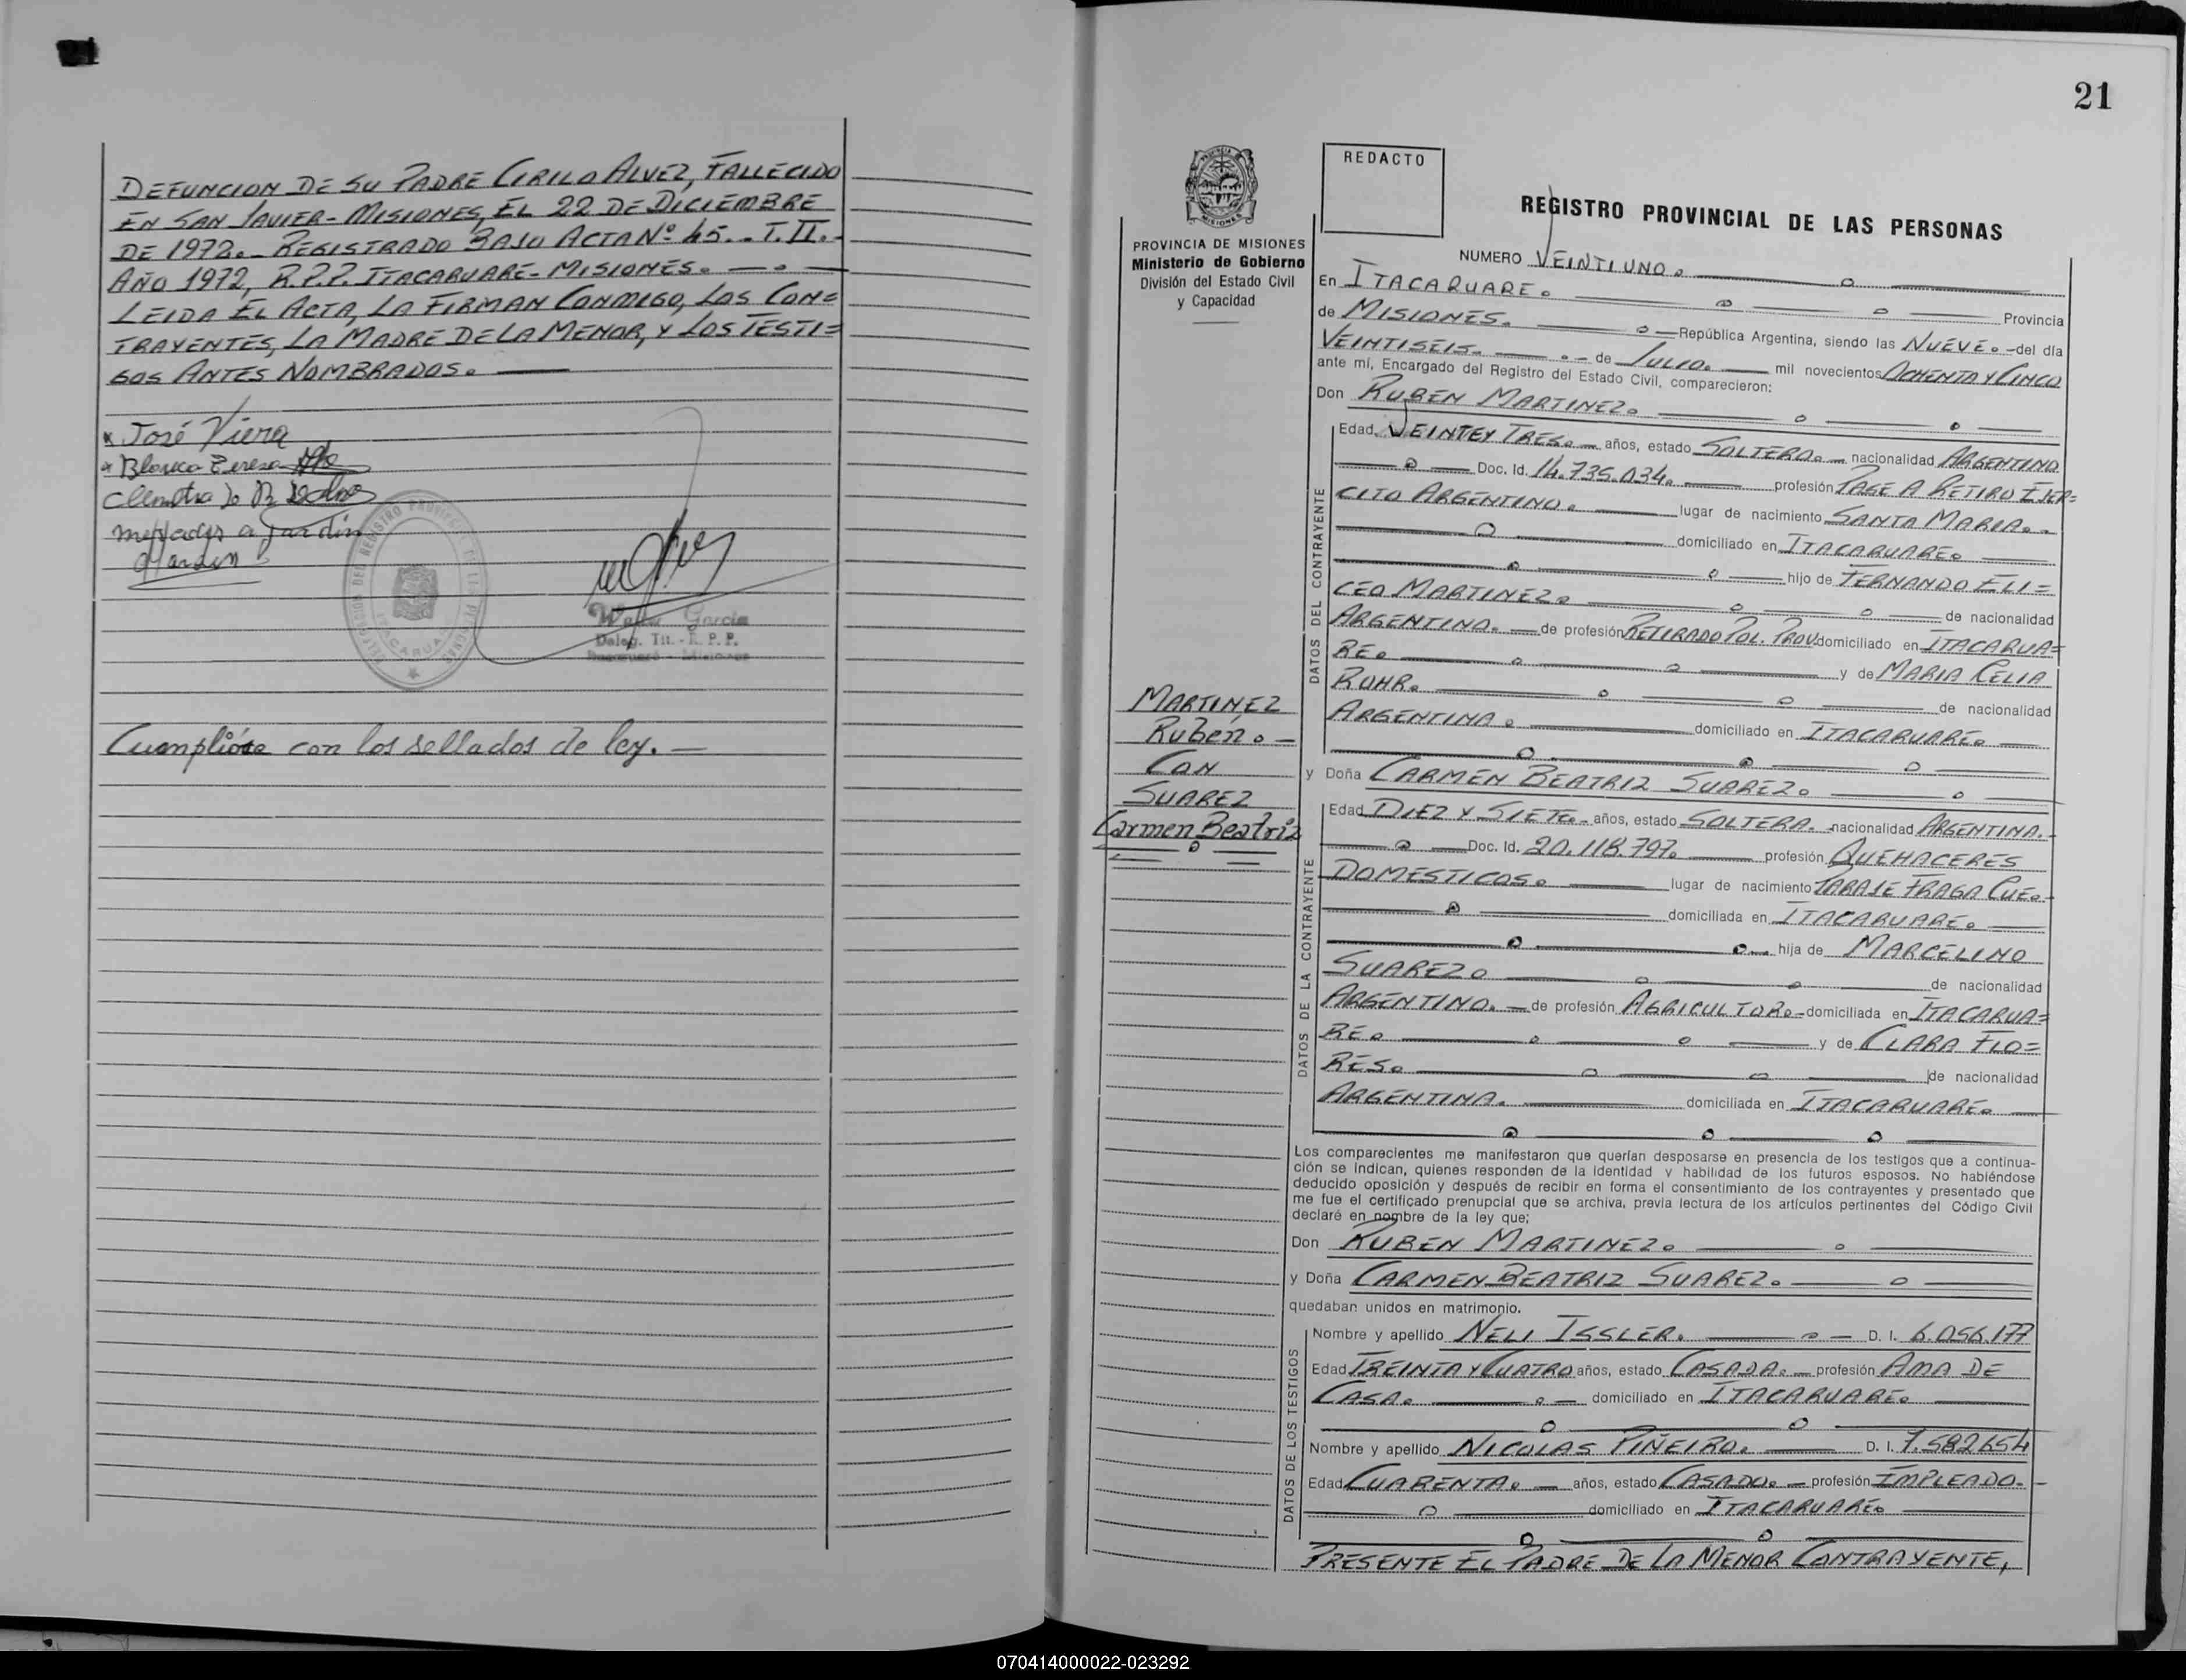 DEFUNCION DE SU PADRE CIRILO ALVEZ, FALLECIDO
EN SAN JAVIER - MISIONES, EL 22 DE DICIEMBRE
DE 1972. - REGISTRADO BAJO ACTA Nº 45. - T. II. -
AÑO 1972, R.P.P. ITACARUARÉ - MISIONES. —
LEIDA EL ACTA, LA FIRMAN CONMIGO, LOS CON=
TRAYENTES, LA MADRE DE LA MENOR, Y LOS TESTI=
GOS ANTES NOMBRADOS. —
José Viera
Blanca Teresa
García
Deleg. Tit. - R. P. P.
Cumplióse con los sellados de ley. —
21
PROVINCIA DE MISIONES
Ministerio de Gobierno
División del Estado Civil
y Capacidad
MARTINEZ
Rubén. -
CON
SUAREZ
Carmen Beatriz
REDACTO
REGISTRO PROVINCIAL DE LAS PERSONAS
NUMERO VEINTIUNO.
En ITACARUARE. Provincia
de MISIONES. República Argentina, siendo las NUEVE. - del día
VEINTISEIS. - de JULIO. mil novecientos OCHENTA Y CINCO
ante mí, Encargado del Registro del Estado Civil, comparecieron:
Don RUBEN MARTINEZ.
DATOS DEL CONTRAYENTE
Edad VEINTEY TRES. - años, estado SOLTERO. - nacionalidad ARGENTINO
Doc. Id. 14.735.034. profesión PASE A RETIRO EJER=
CITO ARGENTINO. lugar de nacimiento SANTA MARIA. -
domiciliado en ITACARUARE.
hijo de FERNANDO ELI=
CEO MARTINEZ. de nacionalidad
ARGENTINO. - de profesión RETIRADO POL. PROV domiciliado en ITACARUA=
RE. y de MARIA CELIA
ROHR. de nacionalidad
ARGENTINA. domiciliado en ITACARUARÉ.
y Doña CARMEN BEATRIZ SUAREZ.
DATOS DE LA CONTRAYENTE
Edad DIEZ Y SIETE. - años, estado SOLTERA. nacionalidad ARGENTINA. -
Doc. Id. 20.118.797. profesión QUEHACERES
DOMESTICOS. lugar de nacimiento PARAJE FRAGA CUE. -
domiciliada en ITACARUARE.
hija de MARCELINO
SUAREZ. de nacionalidad
ARGENTINO. - de profesión AGRICULTOR. - domiciliada en ITACARUA=
RÉ. y de CLARA FLO=
RES. de nacionalidad
ARGENTINA. domiciliada en ITACARUARÉ.
Los comparecientes me manifestaron que querían desposarse en presencia de los testigos que a continua-
ción se indican, quienes responden de la identidad y habilidad de los futuros esposos. No habiéndose
deducido oposición y después de recibir en forma el consentimiento de los contrayentes y presentado que
me fue el certificado prenupcial que se archiva, previa lectura de los artículos pertinentes del Código Civil
declaré en nombre de la ley que;
Don RUBEN MARTINEZ.
y Doña CARMEN BEATRIZ SUAREZ.
quedaban unidos en matrimonio.
DATOS DE LOS TESTIGOS
Nombre y apellido NELI ISSLER. D. I. 6.056.177
Edad TREINTA Y CUATRO años, estado CASADA. - profesión AMA DE
CASA. domiciliado en ITACARUARE.
Nombre y apellido NICOLAS PIÑEIRO. D. I. 7.582654
Edad CUARENTA. - años, estado CASADO. - profesión EMPLEADO. -
domiciliado en ITACARUARÉ.
PRESENTE EL PADRE DE LA MENOR CONTRAYENTE,
070414000022-023292